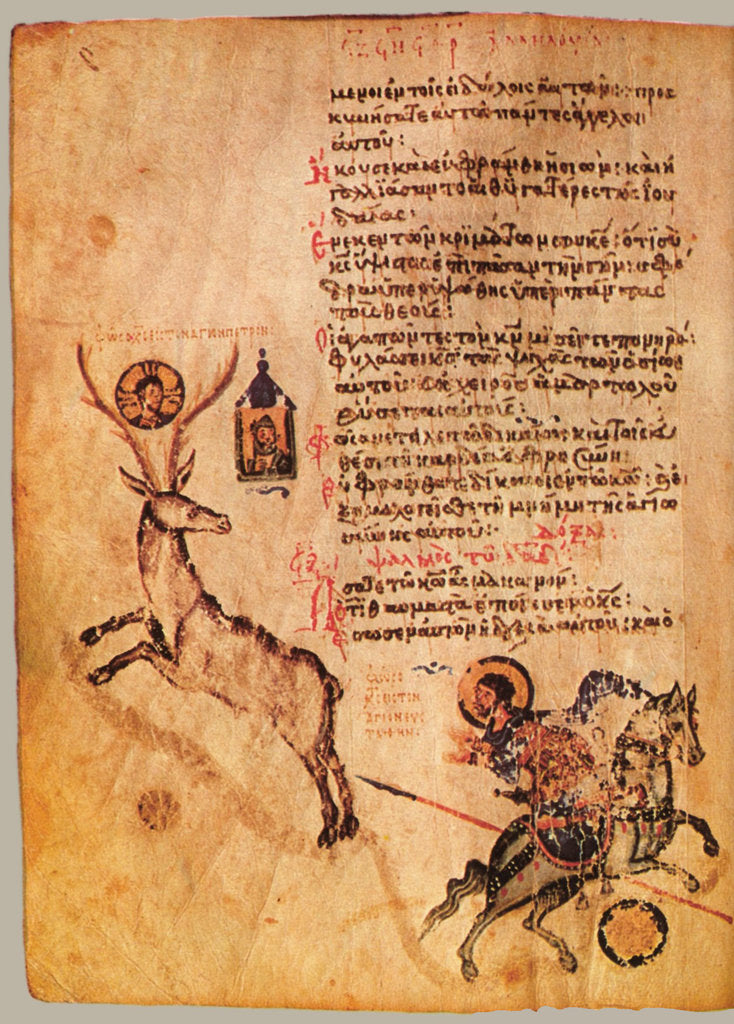 ΑΛΛΗΛΟΥΙΑ
μενοι ἐν τοῖς εἰδώλοις αὐτῶν: προσ
κυνήσατε αὐτὸν πάντες ἄγγελοι
αὐτοῦ:
Ἤκουσε καὶ εὐφράνθη σιών: καὶ ἠ
γαλλιάσαντο αἱ θυγατέρες τῆς ἰου
δαίας:
Ἕνεκεν τῶν κριμάτων σου κε: ὅτι σὺ
κς ὕψιστος ἐπὶ πᾶσαν τὴν γῆν: σφό
δρα ὑπερυψώθης ὑπὲρ πάντας
τοὺς θεούς:
Οἱ ἀγαπῶντες τὸν κν μισεῖτε πονηρά:
φυλάσσει κς τὰς ψυχὰς τῶν ὁσίων
αὐτοῦ: ἐκ χειρὸς ἁμαρτωλοῦ
ῥύσεται αὐτούς:
Φῶς ἀνέτειλε τῷ δικαίῳ: καὶ τοῖς εὐ
θέσι τῇ καρδίᾳ εὐφροσύνη:
Εὐφράνθητε δίκαιοι ἐν τῷ κω: καὶ ἐ
ξομολογεῖσθε τῇ μνήμῃ τῆς ἁγιω
σύνης αὐτοῦ: ΔΟΞΑ:
ψαλμὸς τῷ δαδ
Ἄσατε τῷ κω ᾆσμα καινόν:
Ὅτι θαυμαστὰ ἐποίησεν ὁ κς:
Ἔσωσεν αὐτὸν ἡ δεξιὰ αὐτοῦ: καὶ ὁ